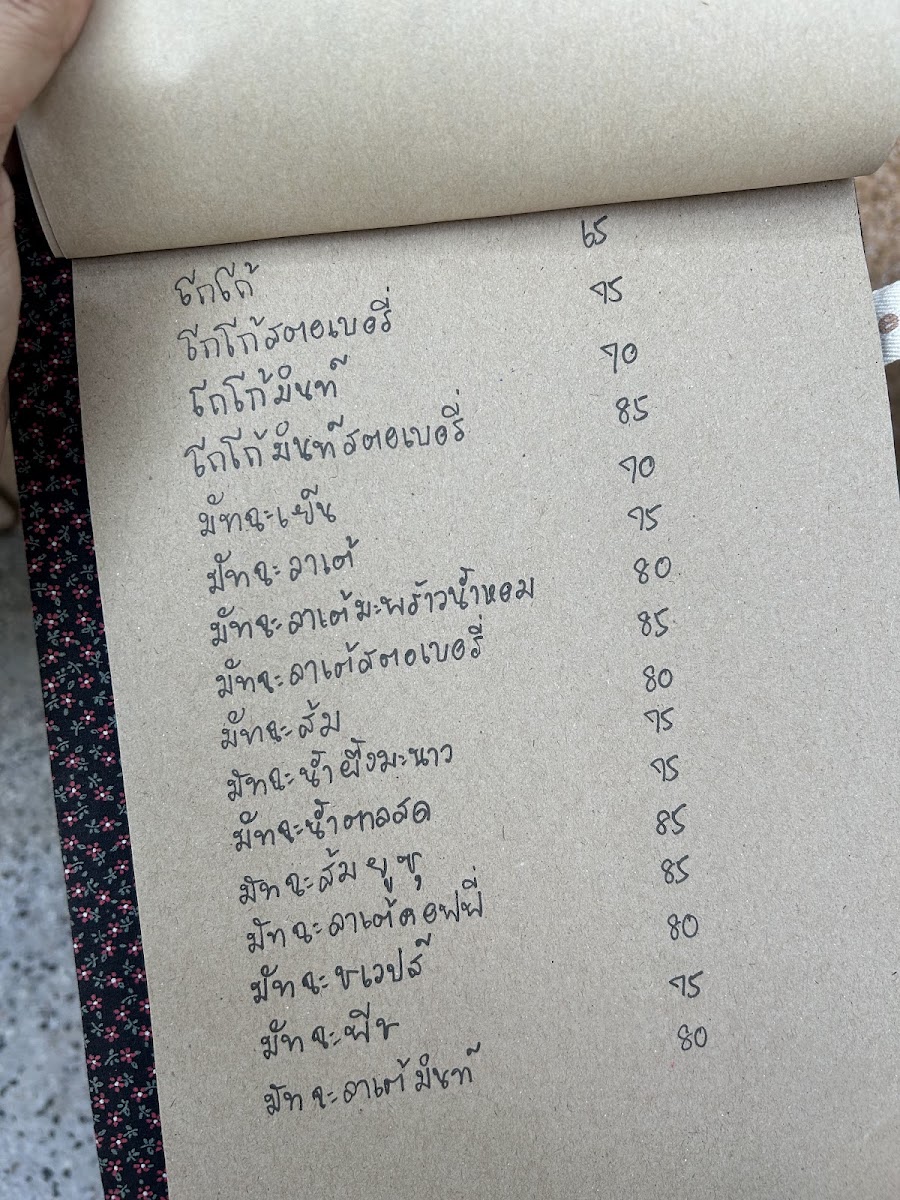 โกโก้ 65
โกโก้สตอเบอรี่ 75
โกโก้มิ้นท์ 70
โกโก้มิ้นท์สตอเบอรี่ 85
มัทฉะเย็น 70
มัทฉะลาเต้ 75
มัทฉะลาเต้มะพร้าวน้ำหอม 80
มัทฉะลาเต้สตอเบอรี่ 85
มัทฉะส้ม 80
มัทฉะน้ำผึ้งมะนาว 75
มัทฉะน้ำตาลสด 75
มัทฉะส้มยูซุ 85
มัทฉะลาเต้คอฟฟี่ 85
มัทฉะชเวปส์ 80
มัทฉะพีช 75
มัทฉะลาเต้มิ้นท์ 80